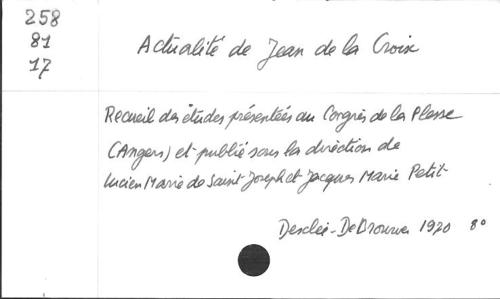 258
81
17
Actualité de Jean de la Croix
Recueil des études présentées au Congrès de la Plesse
(Angers) et publié sous la direction de
Lucien Marie de Saint Joseph et Jacques Marie Petit
Desclée-De Brouwer 1970 8°